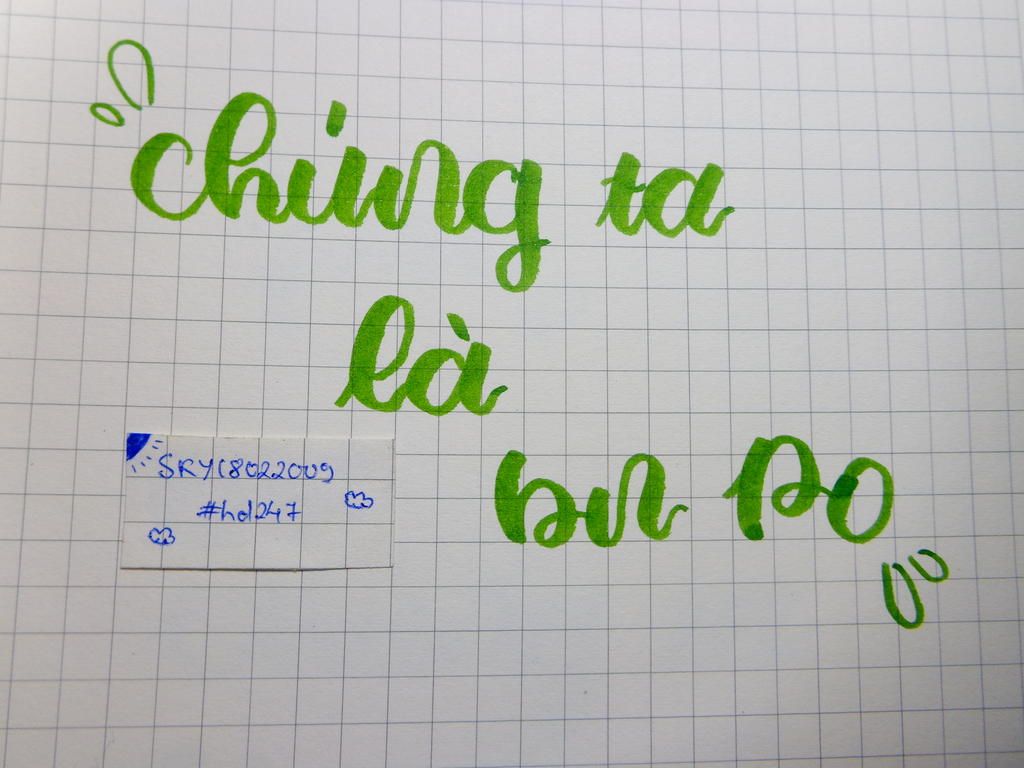 chúng ta
là
po
SRY18022009
#hd247